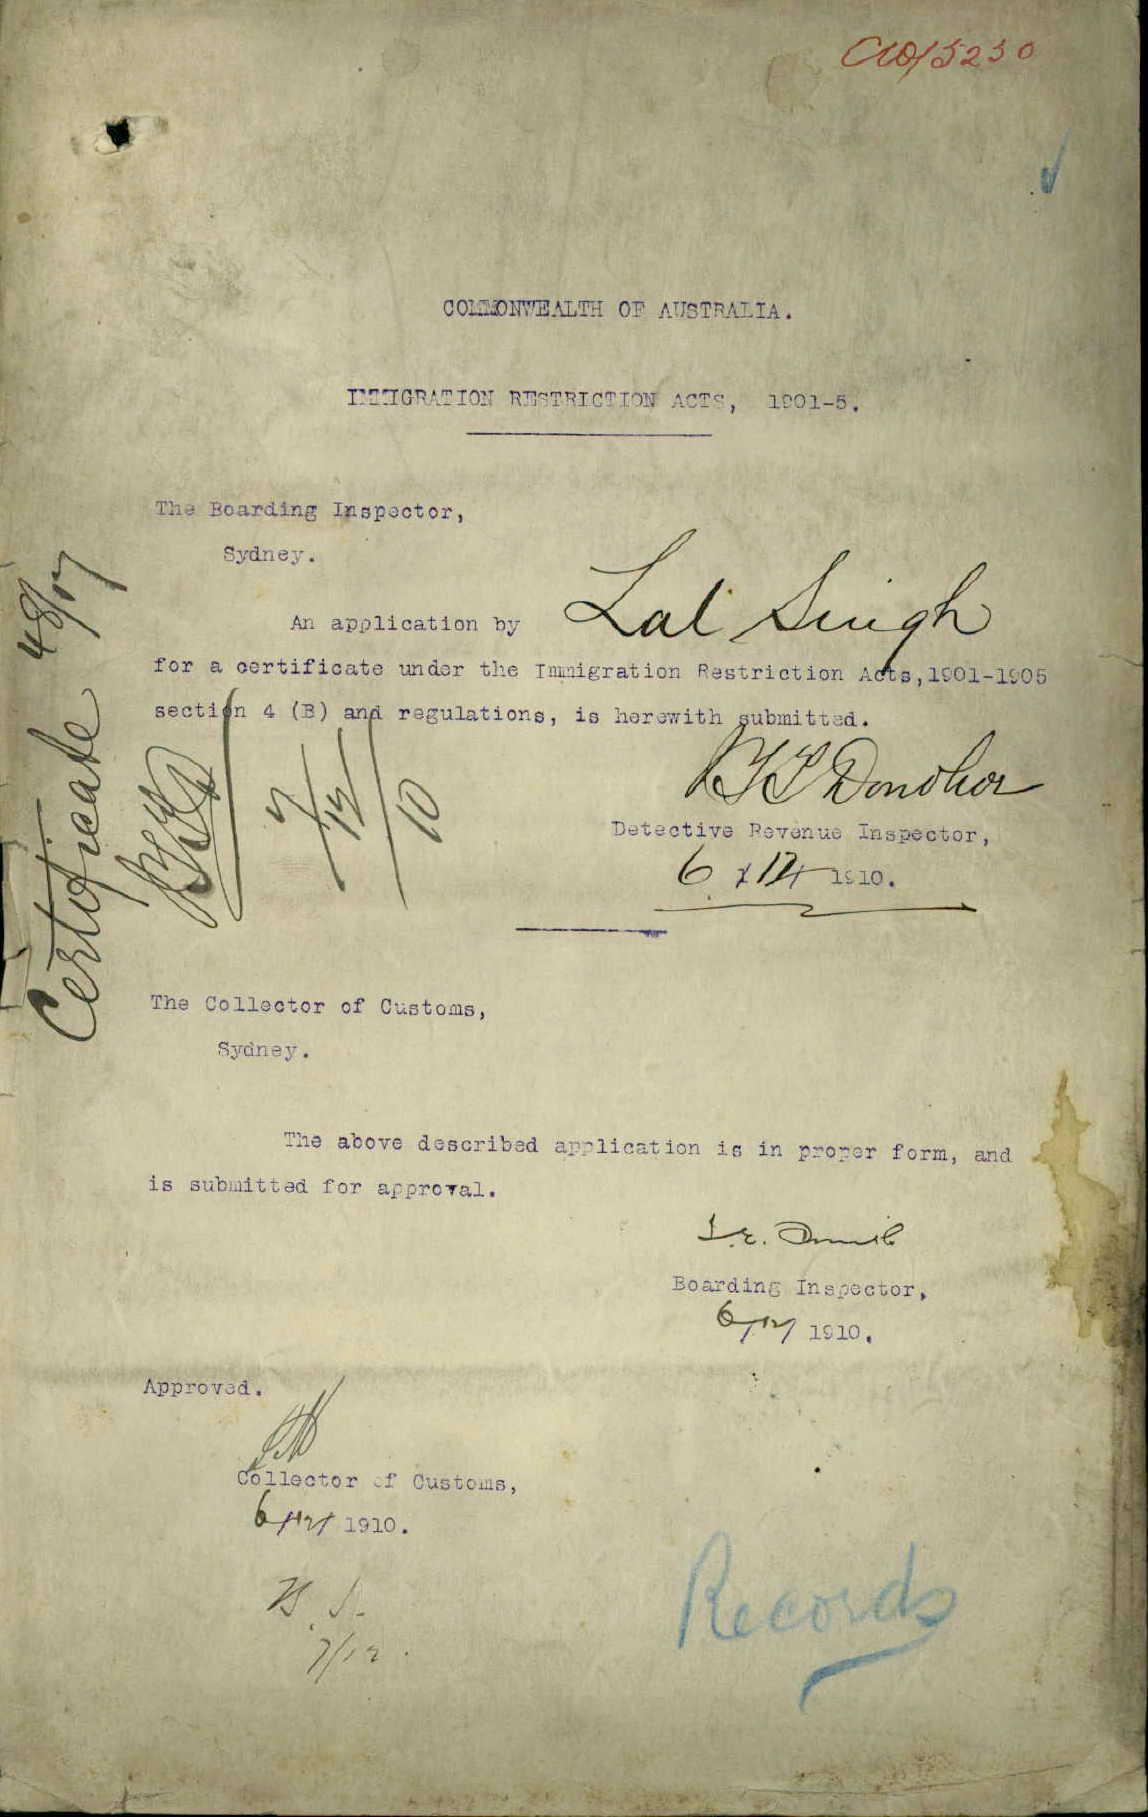 C10/5250
COMMONWEALTH OF AUSTRALIA.
IMMIGRATION RESTRICTION ACTS, 1901-5.
The Boarding Inspector,
Sydney.
An application by Lal Singh
for a certificate under the Immigration Restriction Acts, 1901-1905
section 4 (B) and regulations, is herewith submitted.
Donohoe
Detective Revenue Inspector,
6/12/1910.
Certificate
7/12/10
The Collector of Customs,
Sydney.
The above described application is in proper form, and
is submitted for approval.
Boarding Inspector,
6/12/1910.
Approved.
Collector of Customs,
6/12/1910.
7/12.
Records